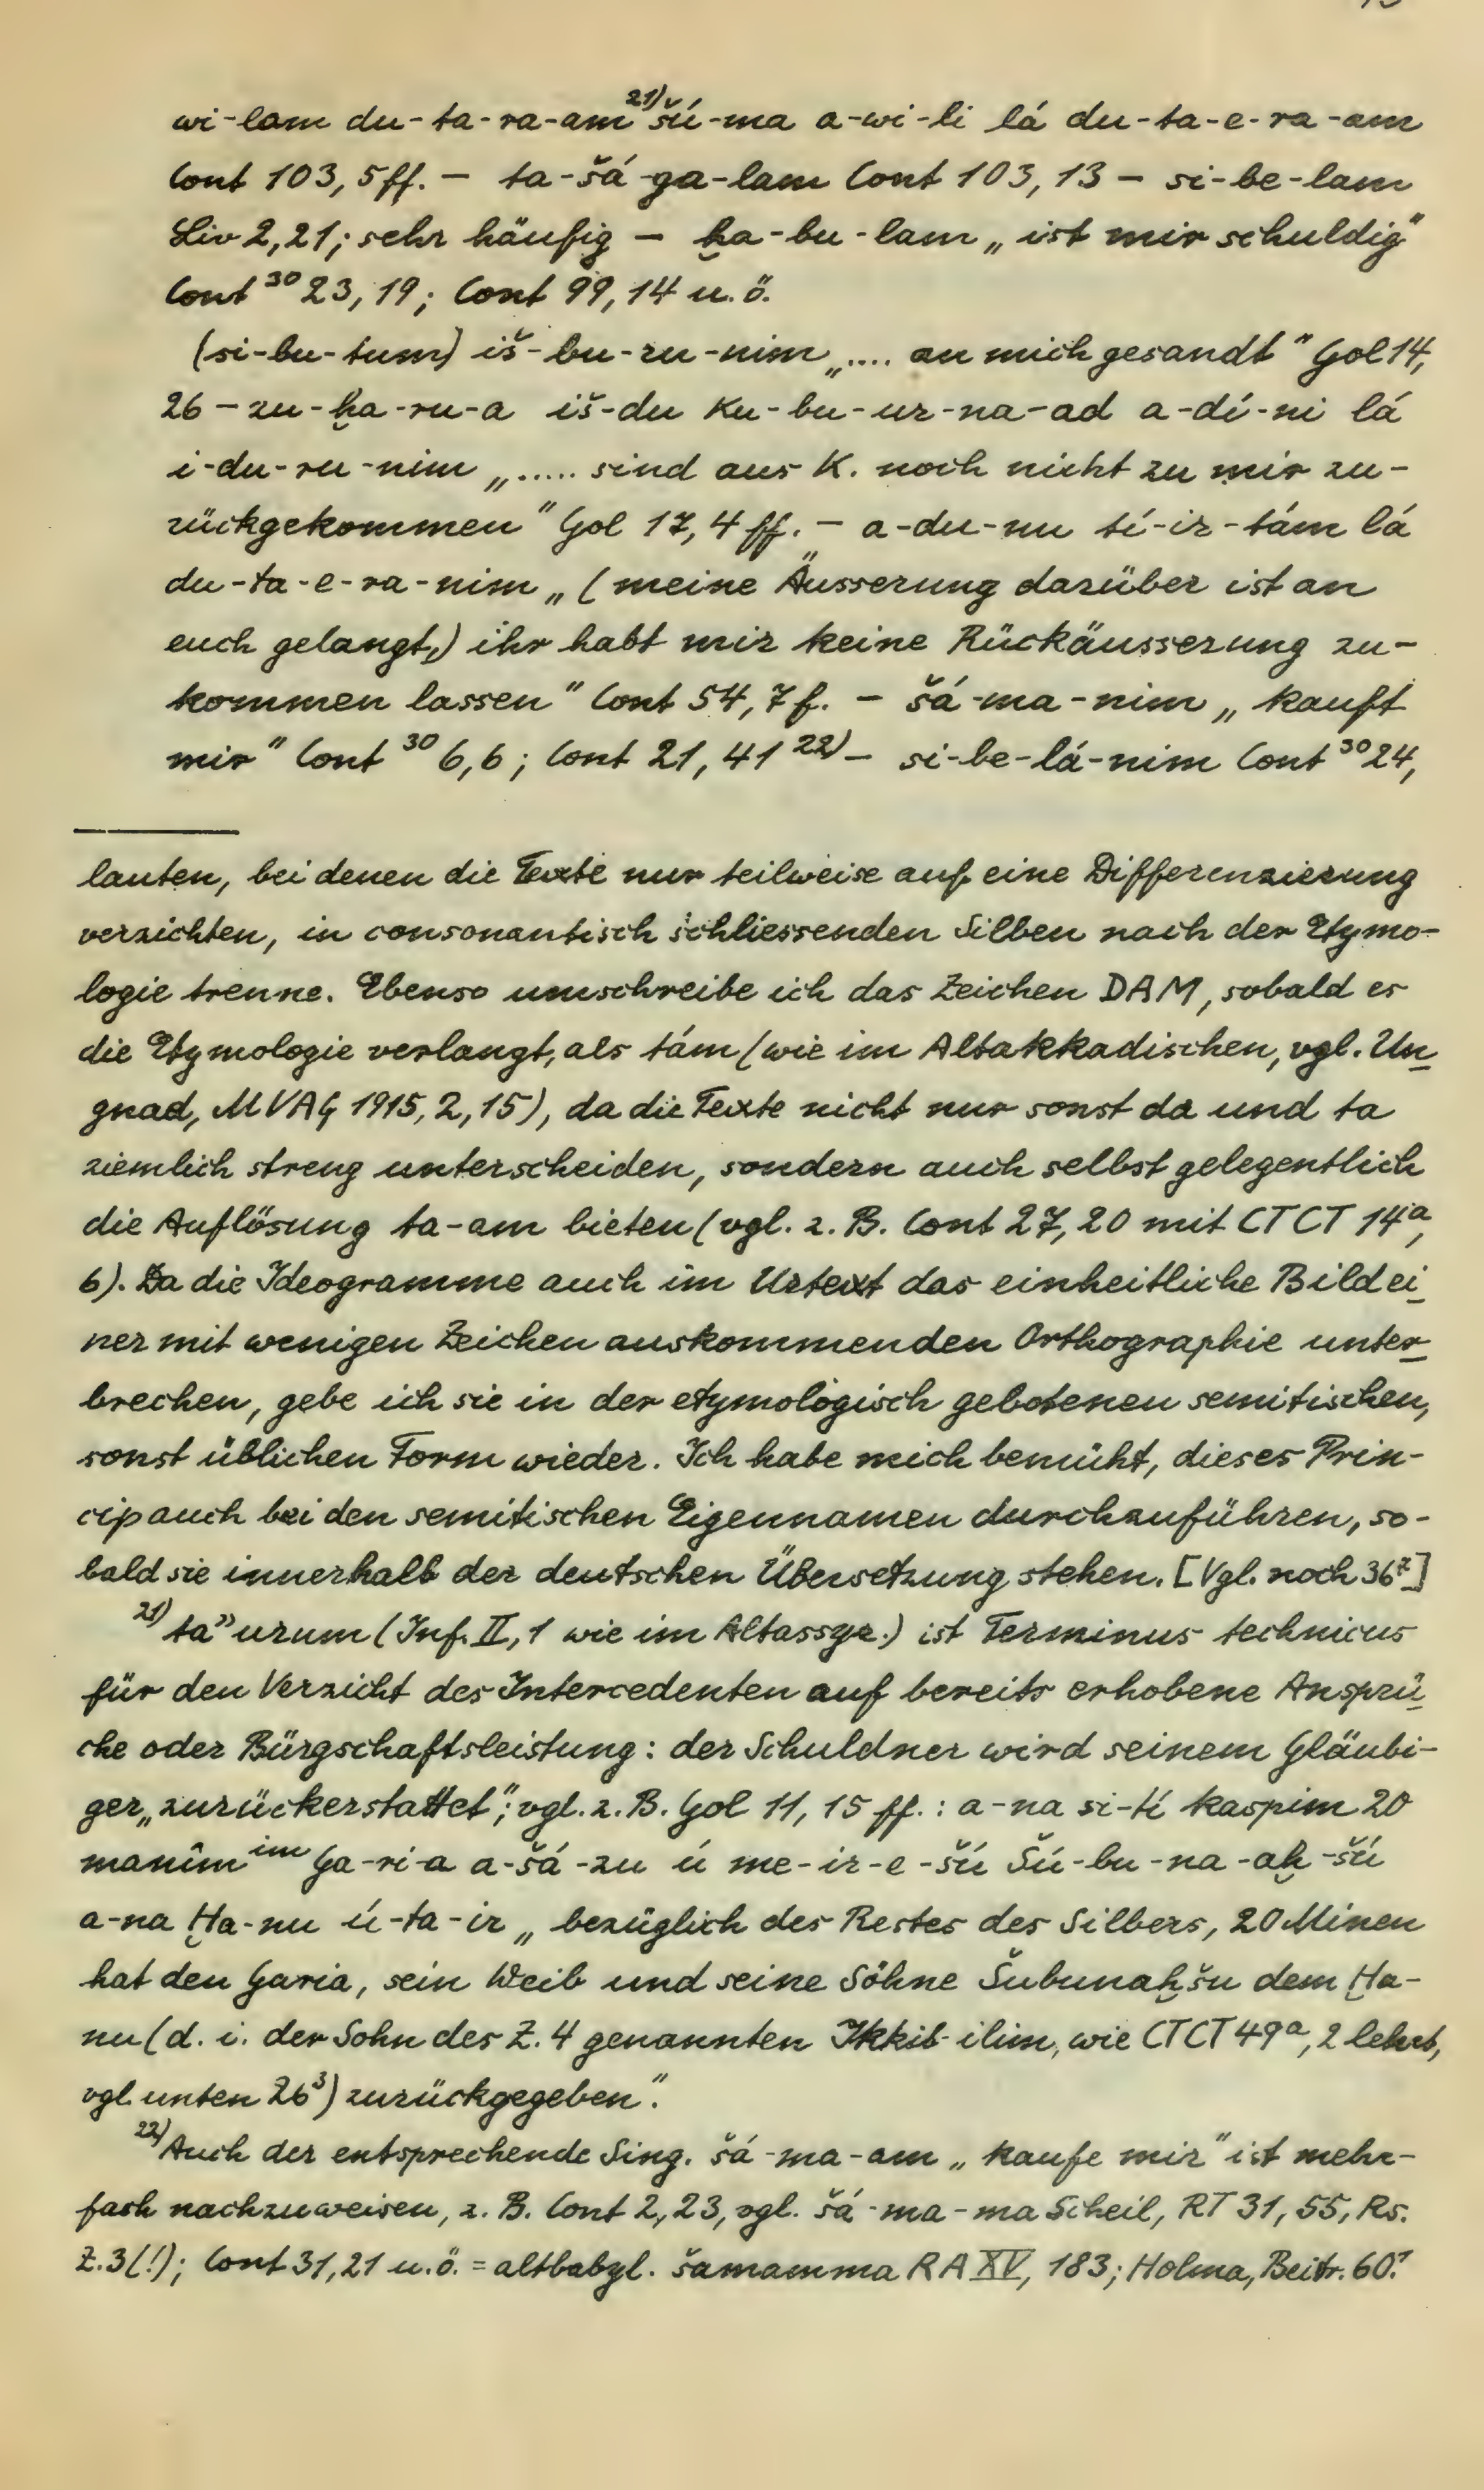 wi-lam du-ta-ra-am²¹⁾ šú-ma a-wi-li lá du-ta-e-ra-am
Cont 103, 5ff. – ta-šá-ga-lam Cont 103, 13 – si-be-lam
Liv 2, 21; sehr häufig – ḫa-bu-lam „ist mir schuldig"
Cont ³⁰ 23, 19; Cont 99, 14 u. ö.
(si-bu-tum) iš-bu-ru-nim „.... an mich gesandt" Gol 14,
26 – zu-ḫa-ru-a iš-du Ku-bu-ur-na-ad a-dí-ni lá
i-du-ru-nim „..... sind aus K. noch nicht zu mir zu-
rückgekommen" Gol 17, 4 ff. – a-du-nu tí-ir-tám lá
du-ta-e-ra-nim „(meine Äusserung darüber ist an
euch gelangt,) ihr habt mir keine Rückäusserung zu-
kommen lassen" Cont 54, 7 f. – šá-ma-nim „kauft
mir" Cont ³⁰ 6, 6; Cont 21, 41 ²²⁾ – si-be-lá-nim Cont ³⁰ 24,
lauten, bei denen die Texte nur teilweise auf eine Differenzierung
verzichten, in consonantisch schliessenden Silben nach der Etymo-
logie trenne. Ebenso umschreibe ich das Zeichen DAM, sobald es
die Etymologie verlangt, als tám (wie im Altakkadischen, vgl. Un-
gnad, MVAG 1915, 2, 15), da die Texte nicht nur sonst da und ta
ziemlich streng unterscheiden, sondern auch selbst gelegentlich
die Auflösung ta-am bieten (vgl. z. B. Cont 27, 20 mit CTCT 14ᵃ,
6). Da die Ideogramme auch im Urtext das einheitliche Bild ei-
ner mit wenigen Zeichen auskommenden Orthographie unter-
brechen, gebe ich sie in der etymologisch gebotenen semitischen,
sonst üblichen Form wieder. Ich habe mich bemüht, dieses Prin-
cip auch bei den semitischen Eigennamen durchzuführen, so-
bald sie innerhalb der deutschen Übersetzung stehen. [Vgl. noch 36⁷]
²¹⁾ ta"urum (Inf. II, 1 wie im Altassyr.) ist Terminus technicus
für den Verzicht des Intercedenten auf bereits erhobene Ansprü-
che oder Bürgschaftsleistung: der Schuldner wird seinem Gläubi-
ger „zurückerstattet"; vgl. z. B. Gol 11, 15 ff.: a-na si-tí kaspim 20
manîm ⁱᵐ Ga-ri-a a-šá-zu ú me-ir-e-šú Šú-bu-na-aḫ-šú
a-na Ḫa-nu ú-ta-ir „bezüglich des Restes des Silbers, 20 Minen
hat den Garia, sein Weib und seine Söhne Šubunaḫšu dem Ḫa-
nu (d. i. der Sohn des Z. 4 genannten Ikkib-ilim, wie CTCT 49ᵃ, 2 lehrt,
vgl. unten 26³) zurückgegeben".
²²⁾ Auch der entsprechende Sing. šá-ma-am „kaufe mir" ist mehr-
fach nachzuweisen, z. B. Cont 2, 23, vgl. šá-ma-ma Scheil, RT 31, 55, Rs.
Z. 3(!); Cont 31, 21 u. ö. = altbabyl. šamamma RA XV, 183; Holma, Beitr. 60.¹